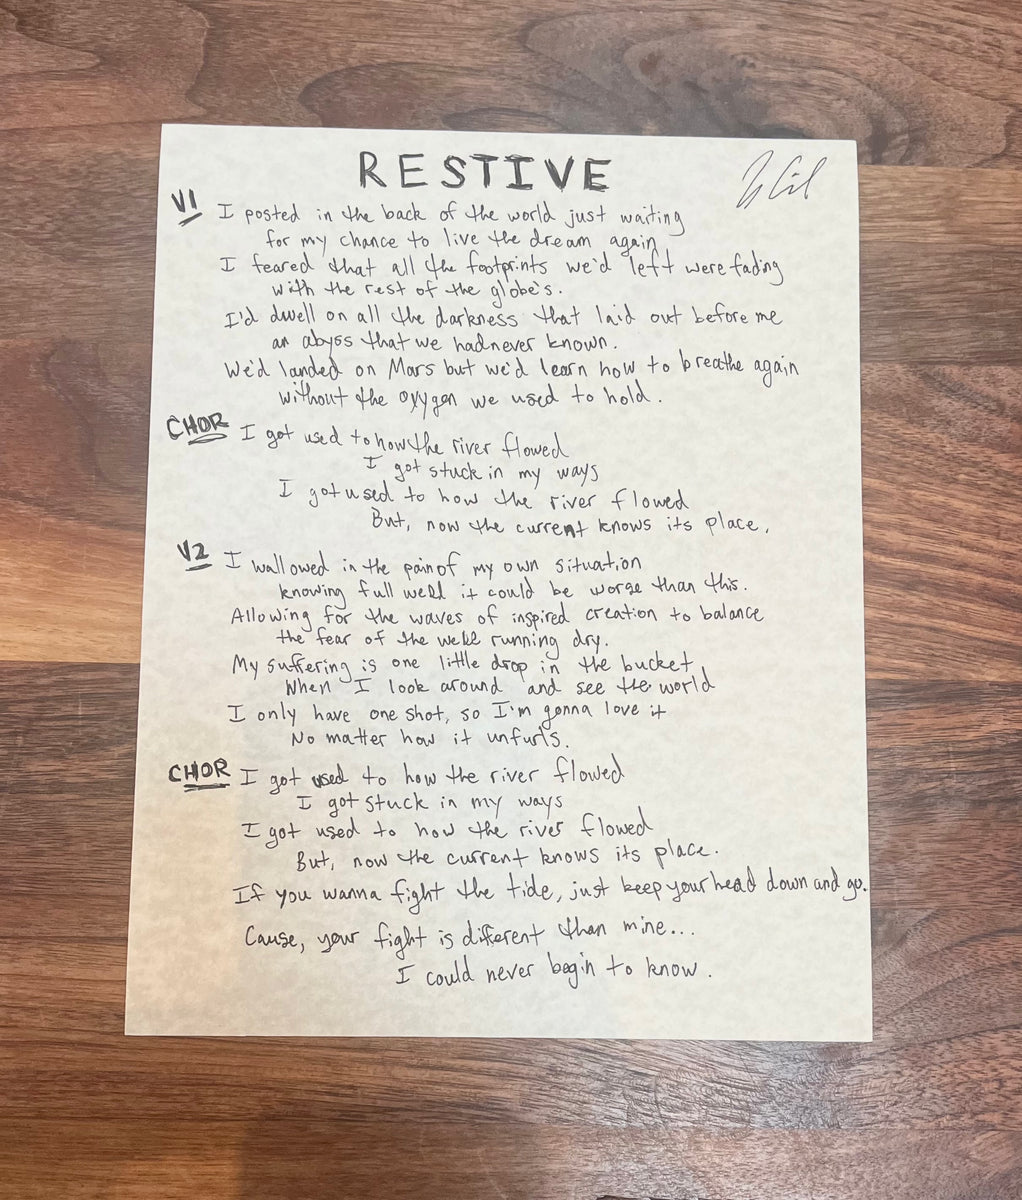 RESTIVE
V1 I posted in the back of the world just waiting
for my chance to live the dream again
I feared that all the footprints we'd left were fading
with the rest of the globe's.
I'd dwell on all the darkness that laid out before me
an abyss that we had never known.
We'd landed on Mars but we'd learn how to breathe again
without the oxygen we used to hold.
CHOR I got used to how the river flowed
I got stuck in my ways
I got used to how the river flowed
But, now the current knows its place.
V2 I wallowed in the pain of my own situation
knowing full well it could be worse than this.
Allowing for the waves of inspired creation to balance
the fear of the well running dry.
My suffering is one little drop in the bucket,
When I look around and see the world
I only have one shot, so I'm gonna love it
No matter how it unfurls.
CHOR I got used to how the river flowed
I got stuck in my ways
I got used to how the river flowed
But, now the current knows its place.
If you wanna fight the tide, just keep your head down and go.
Cause, your fight is different than mine...
I could never begin to know.